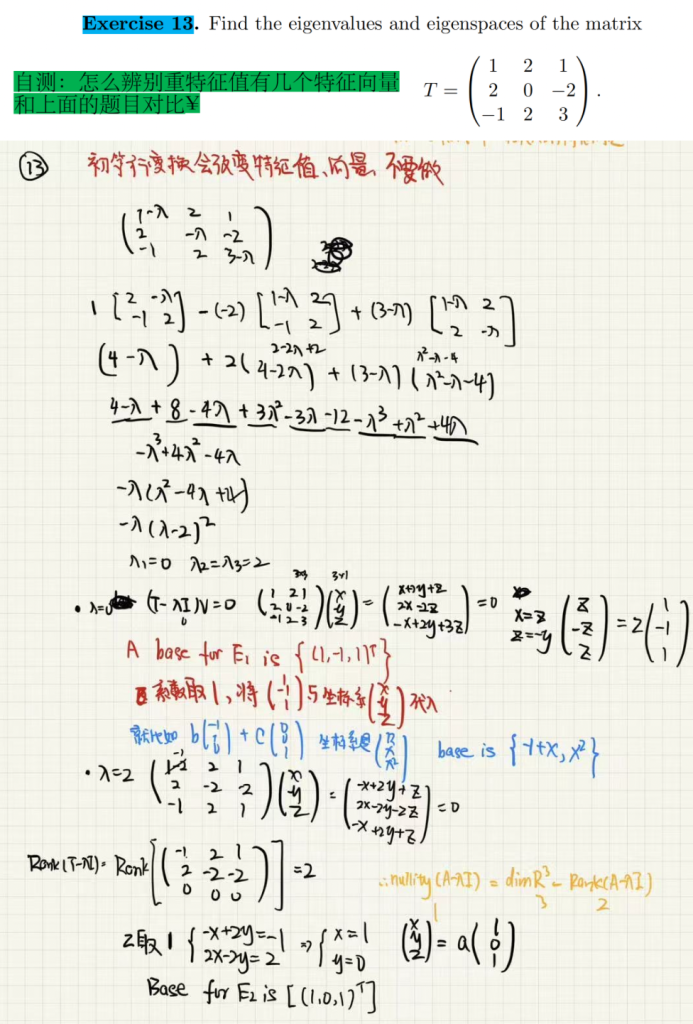 Exercise 13. Find the eigenvalues and eigenspaces of the matrix
自测：怎么辨别重特征值有几个特征向量
和上面的题目对比¥
T = ( 1 2 1
2 0 −2
−1 2 3 ) .
⑬ 初等行变换会改变特征值、向量，不要做
( 1-λ 2 1
2 -λ -2
-1 2 3-λ )
1 [ 2 -λ
-1 2 ] - (-2) [ 1-λ 2
-1 2 ] + (3-λ) [ 1-λ 2
2 -λ ]
2-2λ+2 λ²-λ-4
(4-λ) + 2(4-2λ) + (3-λ)(λ²-λ-4)
4-λ+8-4λ+3λ²-3λ-12-λ³+λ²+4λ
-λ³+4λ²-4λ
-λ(λ²-4λ+4)
-λ(λ-2)²
λ₁=0 λ₂=λ₃=2
3×3 3×1
• λ=0 (T-λI)V=0 ( 1 2 1
2 0 -2
-1 2 3 ) ( x
y
z ) = ( x+2y+z
2x-2z
-x+2y+3z ) = 0 x=z
z=-y ( z
-z
z ) = z ( 1
-1
1 )
0
A base for E₁ is { (1,-1,1)ᵀ }
系数取1,将 ( 1
-1
1 ) 与坐标系 ( x
y
z ) 代入
就比如 b ( -1
1
0 ) + c ( 0
0
1 ) 坐标系是 base is { -1+x, x² }
• λ=2 ( 1-2 2 1
2 -2 2
-1 2 1 ) ( x
y
z ) = ( -x+2y+z
2x-2y-2z
-x+2y+z ) = 0
-1
Rank(T-λI)= Rank [ ( -1 2 1
2 -2 -2
0 0 0 ) ] = 2
∴nullity (A-λI) = dim R³ - Rank(A-λI)
1 3 2
z取1 { -x+2y=-1
2x-2y=2 ⇒ { x=1
y=0 ( x
y
z ) = a ( 1
0
1 )
Base for E₂ is [ (1,0,1)ᵀ ]